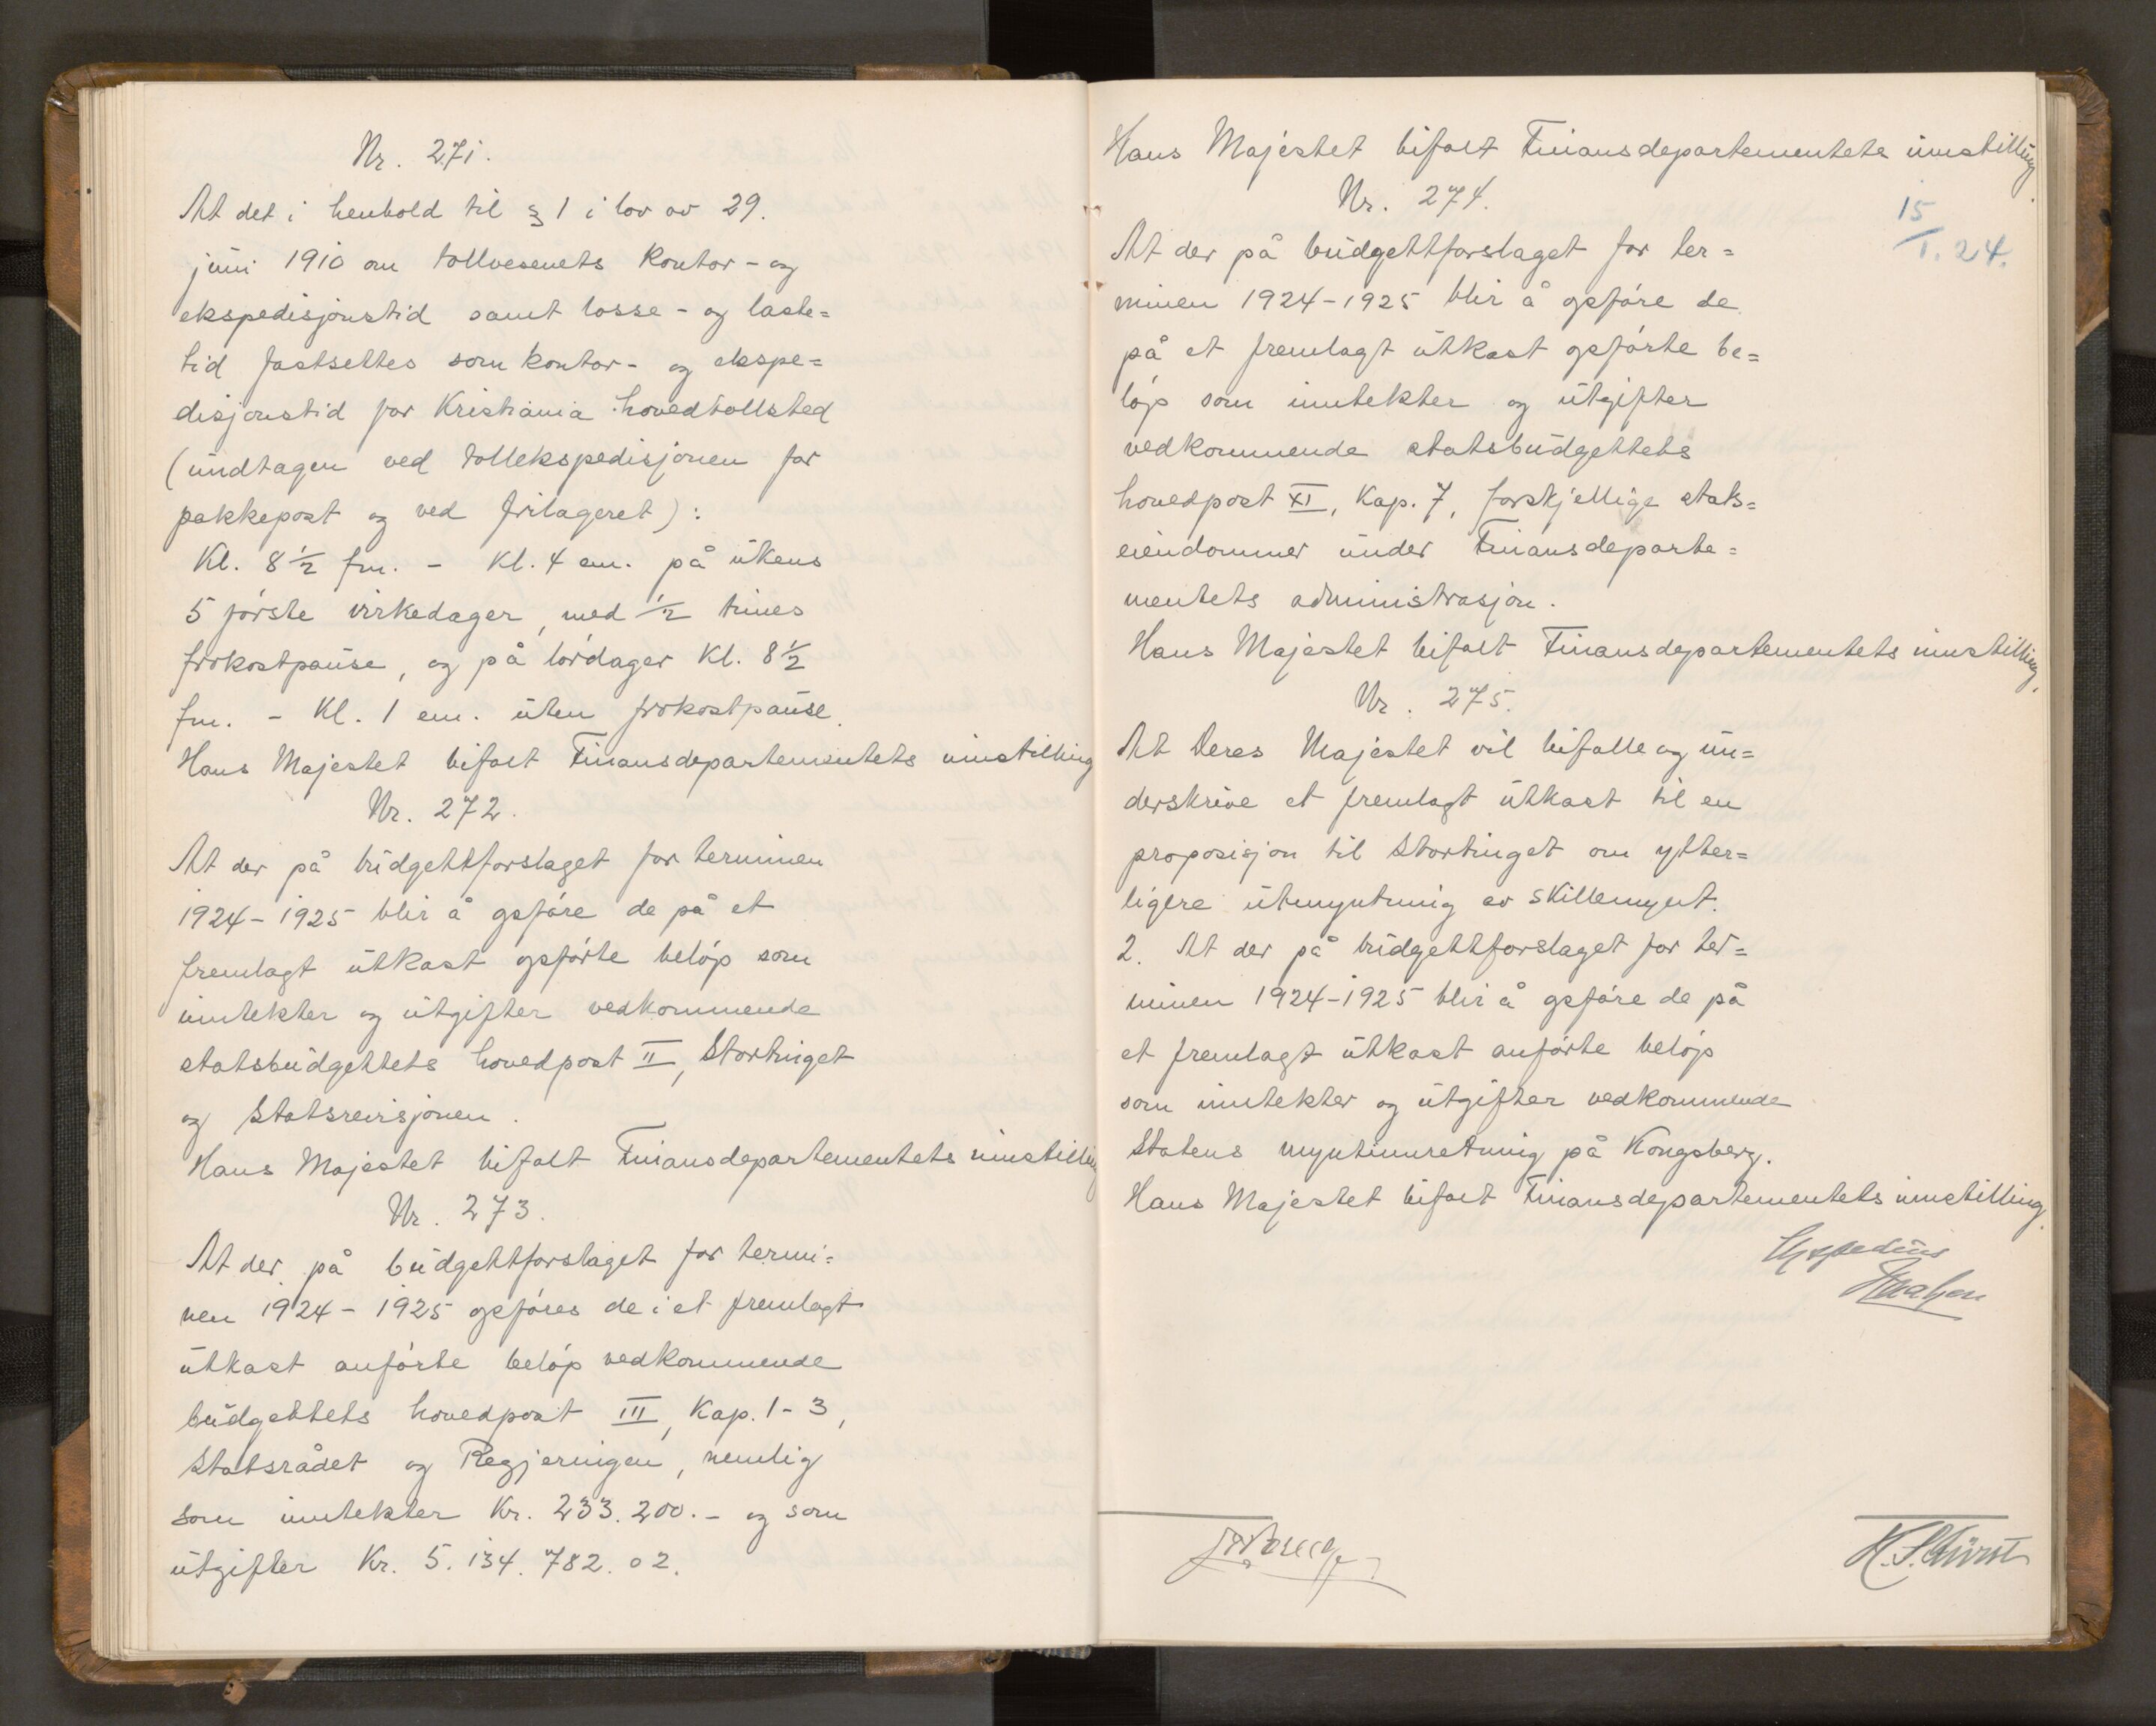 Nr. 271.
At det i henhold til § 1 i lov av 29.
juni 1910 om tollvesenets kontor- og
ekspedisjonstid samt losse- og laste=
tid fastsettes som kontor- og ekspe=
disjonstid for Kristiania hovedtollsted
(undtagen ved tollekspedisjonen for
pakkepost og ved frilageret):
Kl. 8 1/2 fm. - Kl. 4 em. på ukens
5 første virkedager, med 1/2 times
frokostpause, og på lørdager Kl. 8 1/2
fm. - Kl. 1 em. uten frokostpause.
Hans Majestet bifalt Finansdepartementets innstilling
Nr. 272.
At der på budgettforslaget for terminen
1924-1925 blir å opføre de på et
fremlagt utkast opførte beløp som
inntekter og utgifter vedkommende
statsbudgettets hovedpost II, Stortinget
og Statsrevisjonen.
Hans Majestet bifalt Finansdepartementets innstilling
Nr. 273.
At der på budgettforslaget for termi=
nen 1924-1925 opføres de i et fremlagt
utkast anførte beløp vedkommende
budgettets hovedpost III, Kap. 1-3,
Statsrådet og Regjeringen, nemlig
som inntekter Kr. 233.200.- og som
utgifter Kr. 5.134.782.02.
Hans Majestet bifalt Finansdepartementets innstilling.
Nr. 274.
15/1. 24.
At der på budgettforslaget for ter=
minen 1924-1925 blir å opføre de
på et fremlagt utkast opførte be=
løp som inntekter og utgifter
vedkommende statsbudgettets
hovedpost XI, Kap. 7, forskjellige stats=
eiendommer under Finansdeparte=
mentets administrasjon.
Hans Majestet bifalt Finansdepartementets innstilling.
Nr. 275.
At Deres Majestet vil bifalle og un=
derskrive et fremlagt utkast til en
proposisjon til Stortinget om ytter=
ligere utmyntning av skillemynt.
2. At der på budgettforslaget for ter=
minen 1924-1925 blir å opføre de på
et fremlagt utkast anførte beløp
som inntekter og utgifter vedkommende
Statens myntinnretning på Kongsberg.
Hans Majestet bifalt Finansdepartementets innstilling.